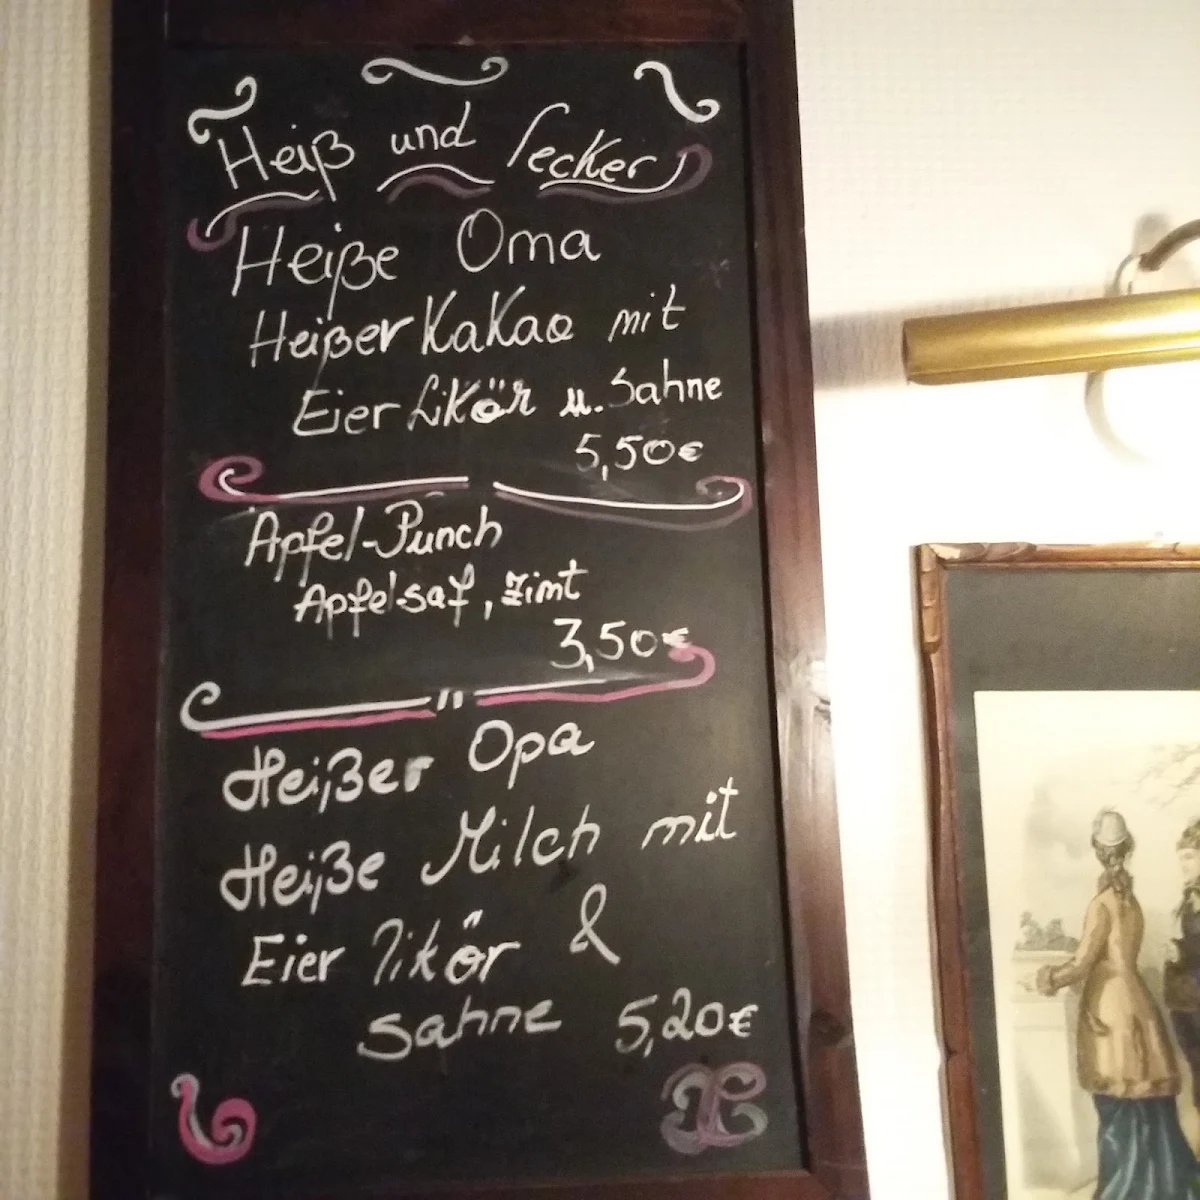 Heiß und lecker
Heiße Oma
Heißer Kakao mit
Eier Likör u. Sahne
5,50€
Apfel-Punch
Apfelsaf, Zimt
3,50€
Heißer Opa
Heiße Milch mit
Eier likör &
Sahne 5,20€